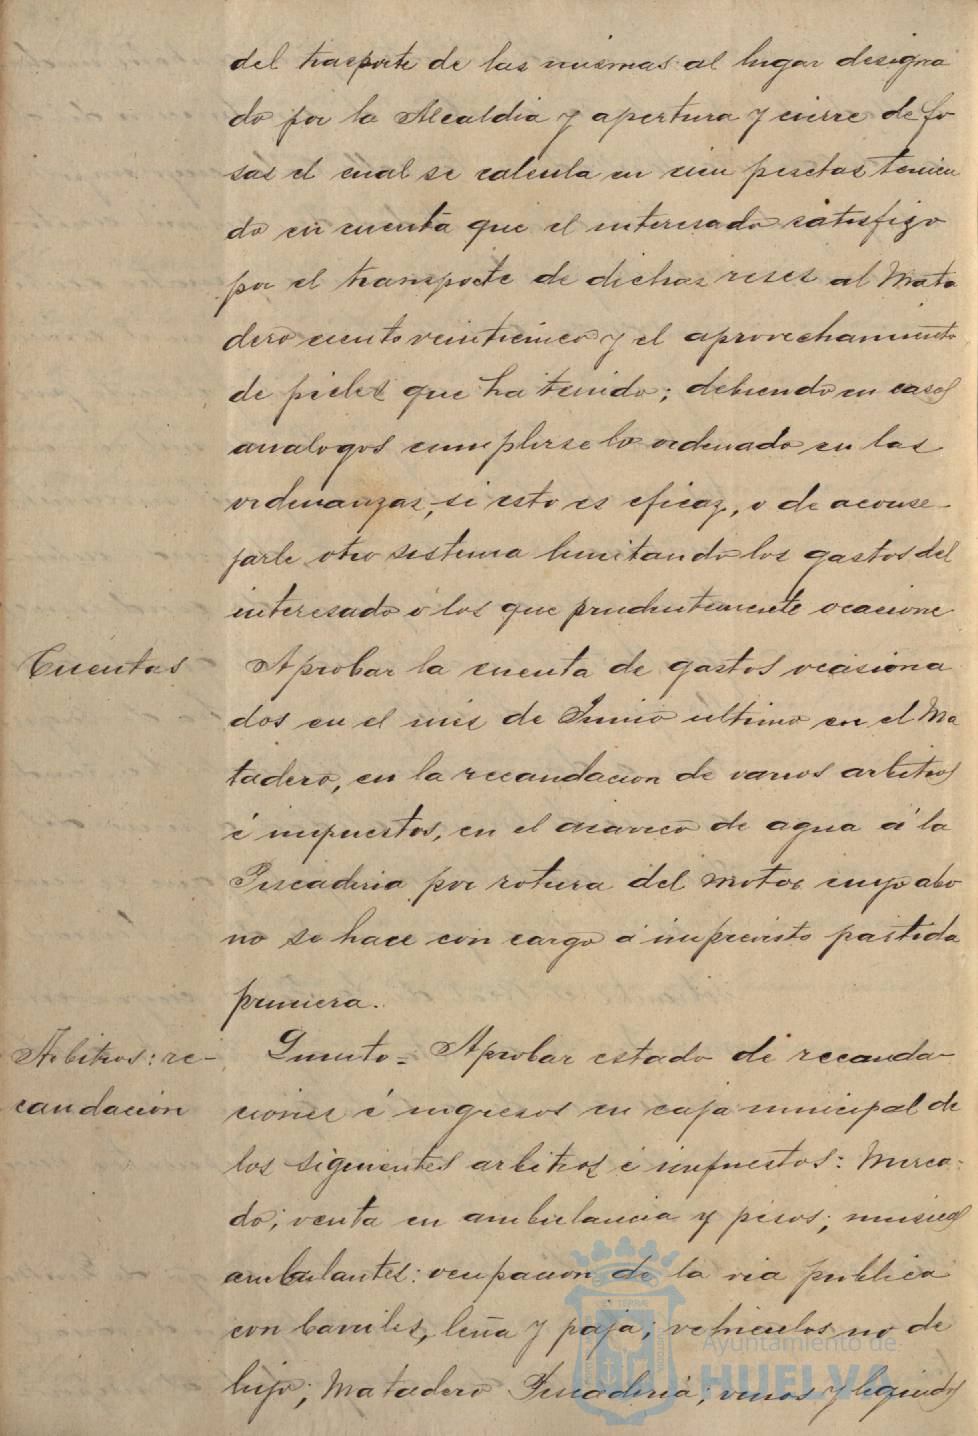 del trasporte de las mismas al lugar designa
do por la Alcaldia y apertura y cierre de fo-
sas el cual se calcula en cien pesetas tenien
do en cuenta que el interesado satisfizo
por el transporte de dichas reses al Mata
dero ciento veinticinco y el aprovechamiento
de pieles que ha tenido; debiendo en casos
analogos cumplirse lo ordenado en las
ordenanzas, si esto es eficaz, o de aconse-
jarle otro sistema limitando los gastos del
interesado á los que prudentemente ocasione
Cuentas
Aprobar la cuenta de gastos ocasiona
dos en el mes de Junio ultimo en el Ma
tadero, en la recaudacion de varios arbitrios
é impuestos, en el acarreo de agua á la
Pescaderia por rotura del motor cuyo abo
no se hace con cargo á imprevisto partida
primera.
Arbitrios: re-
caudación
Quinto = Aprobar estado de recauda-
ciones é ingresos en caja municipal de
los siguientes arbitrios é impuestos: Merca-
do; venta en ambulancia y pisos; musicas
ambulantes: ocupacion de la via publica
con barriles, leña y paja; vehiculos no de
lujo; Matadero Pescaderia; vinos y liquidos
Ayuntamiento de
HUELVA